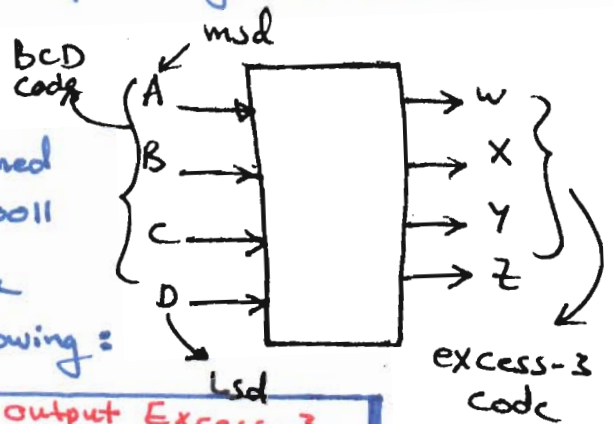 msd
BCD
code
A
B
C
D
W
X
Y
Z
Lsd
excess-3
code
owing :
output Excess-3